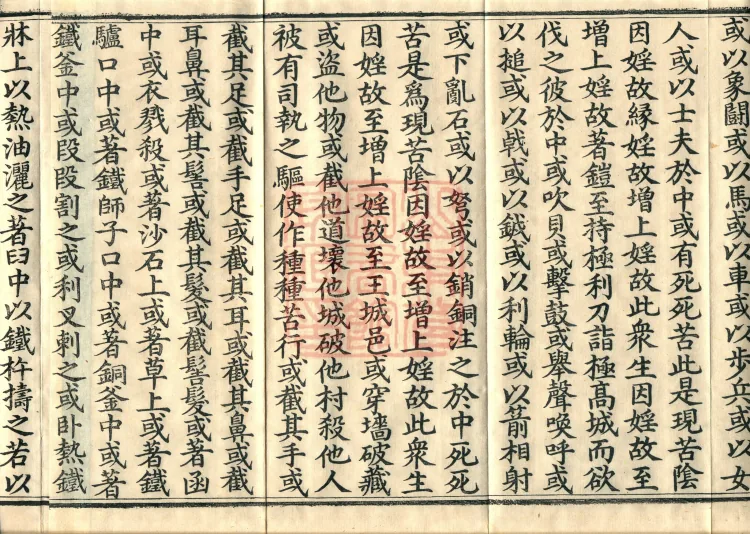 或以象鬪或以馬或以車或以步兵或以女
人或以士夫於中或有死死苦此是現苦陰
因婬故縁婬故增上婬故此衆生因婬故至
增上婬故著鎧至持極利刀詣極高城而欲
伐之彼於中或吹貝或擊鼓或舉聲喚呼或
以搥或以戟或以鉞或以利輪或以箭相射
或下亂石或以弩或以銷銅注之於中死死
苦是爲現苦陰因婬故至增上婬故此衆生
因婬故至增上婬故至王城邑或穿墻破藏
或盜他物或截他道壞他城破他村殺他人
被有司執之驅使作種種苦行或截其手或
截其足或截手足或截其耳或截其鼻或截
耳鼻或截其髻或截其髮或截髻髮或著函
中或衣戮殺或著沙石上或著草上或著鐵
驢口中或著鐵師子口中或著銅釜中或著
鐵釜中或段段割之或利叉刺之或臥熱鐵
牀上以熱油灑之著臼中以鐵杵擣之若以